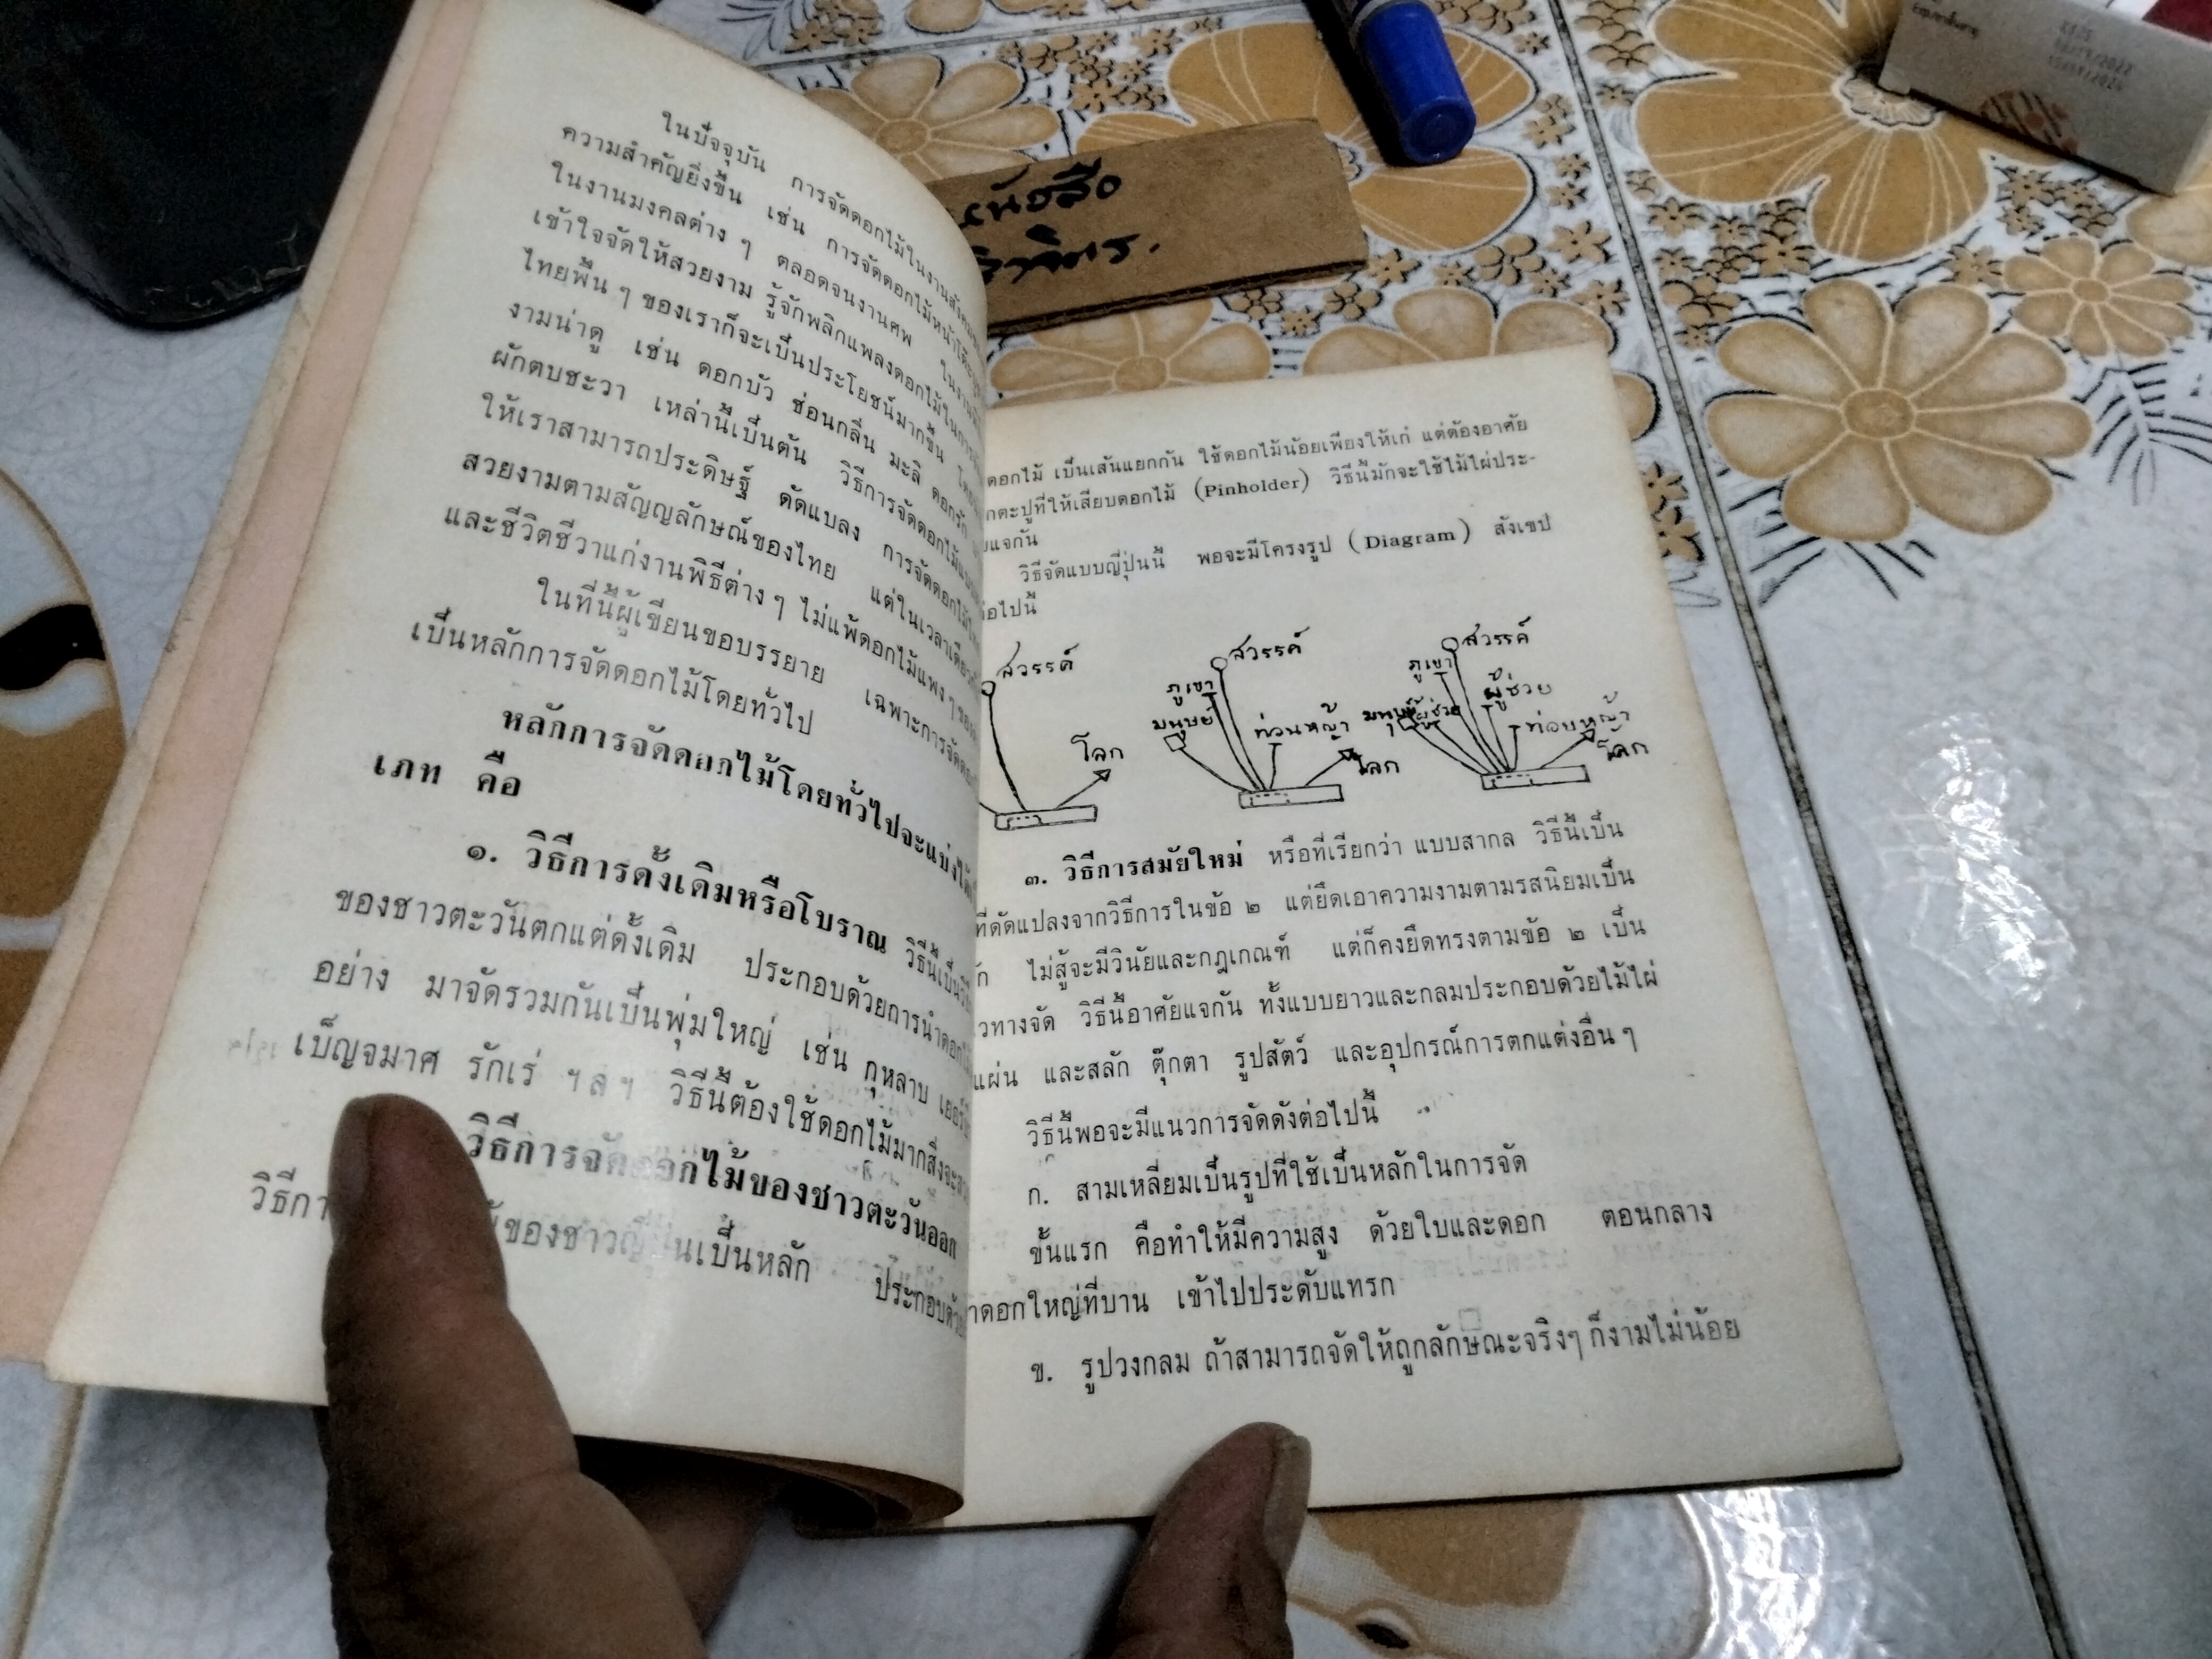 ในปัจจุบัน การจัดดอกไม้ในงานสังคม
ความสำคัญยิ่งขึ้น เช่น การจัดดอกไม้หน้าโต๊ะ
ในงานมงคลต่าง ๆ ตลอดจนงานศพ
เข้าใจจัดให้สวยงาม รู้จักพลิกแพลงดอกไม้ในการ
ไทยพื้น ๆ ของเราก็จะเป็นประโยชน์มากขึ้น
งามน่าดู เช่น ดอกบัว ซ่อนกลิ่น มะลิ ดอกรัก
ผักตบชะวา เหล่านี้เป็นต้น วิธีการจัดดอกไม้แบบ
ให้เราสามารถประดิษฐ์ ดัดแบลง การจัดดอกไม้
สวยงามตามสัญญลักษณ์ของไทย แต่ในเวลาเดียว
และชีวิตชีวาแก่งานพิธีต่าง ๆ ไม่แพ้ดอกไม้แพง ๆ ของ
ในที่นี้ผู้เขียนขอบรรยาย เฉพาะการจัดดอก
เป็นหลักการจัดดอกไม้โดยทั่วไป
หลักการจัดดอกไม้โดยทั่วไปจะแบ่งได้
เภท คือ
๑. วิธีการดั้งเดิมหรือโบราณ วิธีนี้เป็นวิธี
ของชาวตะวันตกแต่ดั้งเดิม ประกอบด้วยการนำดอกไม้
อย่าง มาจัดรวมกันเป็นพุ่มใหญ่ เช่น กุหลาบ
เบ็ญจมาศ รักเร่ ฯลฯ วิธีนี้ต้องใช้ดอกไม้มากสิ่งจะ
วิธีการจัดดอกไม้ของชาวตะวันออก
วิธีกา ของชาวญี่ปุ่นเป็นหลัก ประกอบด้วย
หนังสือ
ดอกไม้ เป็นเส้นแยกกัน ใช้ดอกไม้น้อยเพียงให้เก๋ แต่ต้องอาศัย
กตะปูที่ให้เสียบดอกไม้ (Pinholder) วิธีนี้มักจะใช้ไม้ไผ่ประ-
บแจกัน
วิธีจัดแบบญี่ปุ่นนี้ พอจะมีโครงรูป (Diagram) สังเขป
อไปนี้
สวรรค์ สวรรค์ สวรรค์
ภูเขา ภูเขา ผู้ช่วย
มนุษย์ ท่อนหญ้า มนุษย์ ผู้ช่วย ท่อนหญ้า
โลก โลก โลก
๓. วิธีการสมัยใหม่ หรือที่เรียกว่า แบบสากล วิธีนี้เป็น
ที่ดัดแปลงจากวิธีการในข้อ ๒ แต่ยึดเอาความงามตามรสนิยมเป็น
ก ไม่สู้จะมีวินัยและกฎเกณฑ์ แต่ก็คงยึดทรงตามข้อ ๒ เป็น
วทางจัด วิธีนี้อาศัยแจกัน ทั้งแบบยาวและกลมประกอบด้วยไม้ไผ่
แผ่น และสลัก ตุ๊กตา รูปสัตว์ และอุปกรณ์การตกแต่งอื่น ๆ
วิธีนี้พอจะมีแนวการจัดดังต่อไปนี้
ก. สามเหลี่ยมเป็นรูปที่ใช้เป็นหลักในการจัด
ขั้นแรก คือทำให้มีความสูง ด้วยใบและดอก ตอนกลาง
าดอกใหญ่ที่บาน เข้าไปประดับแทรก
ข. รูปวงกลม ถ้าสามารถจัดให้ถูกลักษณะจริงๆ ก็งามไม่น้อย